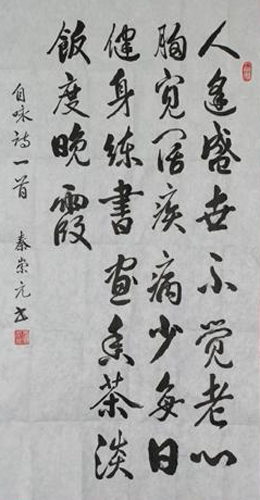 人逢盛世不觉老心
胸宽阔疾病少每日
健身练书画香茶淡
饭度晚霞
自咏诗一首
秦崇元书